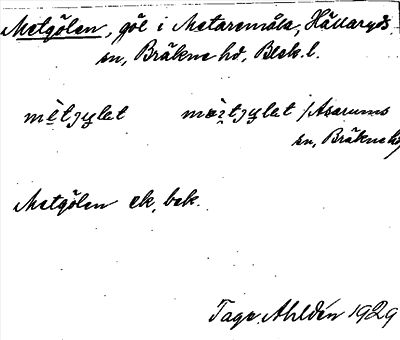 Metgölen, göl i Metaremåla, Hällaryds
sn, Bräkne hd, Blek. l.
mètjylet mætjylet /Asarums
sn, Bräkne hd/
Metgölen ek, bek.
Tage Ahldén 1929